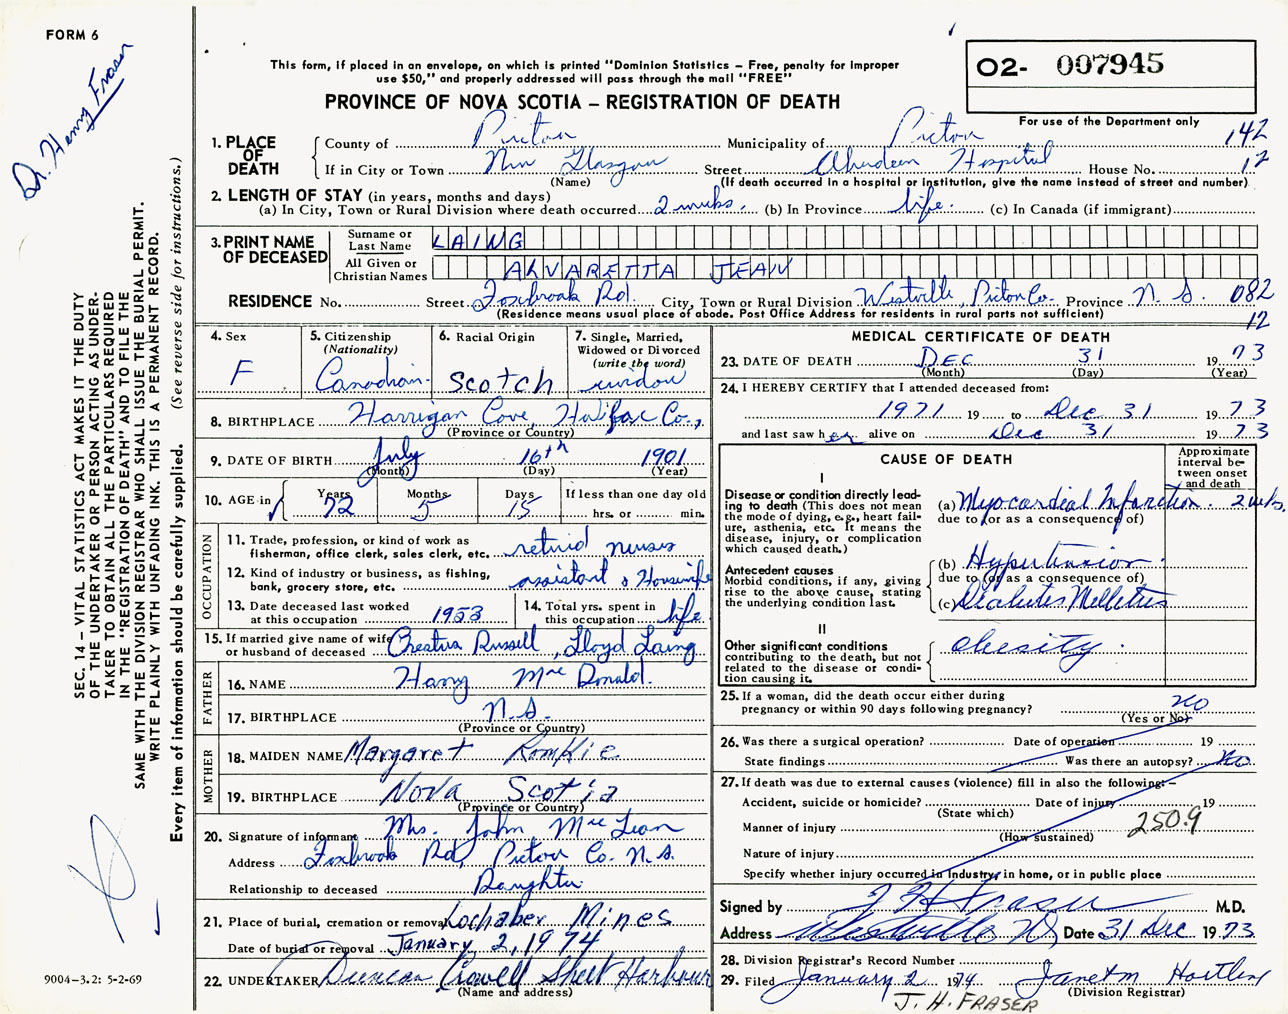 FORM 6
Dr. Henry Fraser
This form, if placed in an envelope, on which is printed "Dominion Statistics – Free, penalty for improper
use $50," and properly addressed will pass through the mail "FREE"
PROVINCE OF NOVA SCOTIA – REGISTRATION OF DEATH
O2- 007945
For use of the Department only
1. PLACE OF DEATH
County of Pictou Municipality of Pictou 142
If in City or Town New Glasgow Street Aberdeen Hospital House No. 12
(Name) (If death occurred in a hospital or institution, give the name instead of street and number)
2. LENGTH OF STAY (in years, months and days)
(a) In City, Town or Rural Division where death occurred 2 wks. (b) In Province life. (c) In Canada (if immigrant)
3. PRINT NAME OF DECEASED
Surname or Last Name LAING
All Given or Christian Names ALVARETTA JEAN
RESIDENCE No. Street Foxbrook Rd. City, Town or Rural Division Westville, Pictou Co. Province N. S. 082
(Residence means usual place of abode. Post Office Address for residents in rural parts not sufficient) 12
4. Sex F
5. Citizenship (Nationality) Canadian
6. Racial Origin Scotch
7. Single, Married, Widowed or Divorced (write the word) widow
8. BIRTHPLACE Harrigan Cove, Halifax Co.,
(Province or Country)
9. DATE OF BIRTH July 16th 1901
(Month) (Day) (Year)
10. AGE in Years 72 Months 5 Days 15 If less than one day old hrs. or min.
OCCUPATION
11. Trade, profession, or kind of work as
fisherman, office clerk, sales clerk, etc. retired nurses
12. Kind of industry or business, as fishing,
bank, grocery store, etc. assistant & Housewife
13. Date deceased last worked
at this occupation 1953
14. Total yrs. spent in
this occupation life.
15. If married give name of wife
or husband of deceased Russell, Lloyd Laing
FATHER
16. NAME Harry MacDonald.
17. BIRTHPLACE N.S.
(Province or Country)
MOTHER
18. MAIDEN NAME Margaret Romkie
19. BIRTHPLACE Nova Scotia
(Province or Country)
20. Signature of informant Mrs. John MacLean
Address Foxbrook Rd, Pictou Co. N.S.
Relationship to deceased Daughter
21. Place of burial, cremation or removal Lochaber Mines
Date of burial or removal January 2, 1974
22. UNDERTAKER Duncan Crowell Sheet Harbour
(Name and address)
MEDICAL CERTIFICATE OF DEATH
23. DATE OF DEATH DEC 31 1973
(Month) (Day) (Year)
24. I HEREBY CERTIFY that I attended deceased from:
1971 19 to Dec 31 1973
and last saw her alive on Dec 31 1973
CAUSE OF DEATH
Approximate interval between onset and death
I
Disease or condition directly leading
to death (This does not mean
the mode of dying, e.g., heart failure,
asthenia, etc. It means the
disease, injury, or complication
which caused death.)
(a) Myocardial Infarction. 2 wks.
due to (or as a consequence of)
Antecedent causes
Morbid conditions, if any, giving
rise to the above cause, stating
the underlying condition last.
(b) Hypertension
due to (or as a consequence of)
(c) Diabetes Mellitus
II
Other significant conditions
contributing to the death, but not
related to the disease or condition
causing it.
obesity.
25. If a woman, did the death occur either during
pregnancy or within 90 days following pregnancy? no
(Yes or No)
26. Was there a surgical operation? Date of operation 19
State findings Was there an autopsy? No.
27. If death was due to external causes (violence) fill in also the following:–
Accident, suicide or homicide? Date of injury 19
(State which)
Manner of injury 250.9
(How sustained)
Nature of injury
Specify whether injury occurred in Industry, in home, or in public place
Signed by J H Fraser M.D.
Address Westville NS Date 31 Dec 1973
28. Division Registrar's Record Number
29. Filed January 2 1974 Janet M Hartlen
(Division Registrar)
J. H. FRASER
SEC. 14 – VITAL STATISTICS ACT MAKES IT THE DUTY
OF THE UNDERTAKER OR PERSON ACTING AS UNDER-
TAKER TO OBTAIN ALL THE PARTICULARS REQUIRED
IN THE "REGISTRATION OF DEATH" AND TO FILE THE
SAME WITH THE DIVISION REGISTRAR WHO SHALL ISSUE THE BURIAL PERMIT.
WRITE PLAINLY WITH UNFADING INK. THIS IS A PERMANENT RECORD.
Every item of information should be carefully supplied. (See reverse side for instructions.)
9004-3.2: 5-2-69